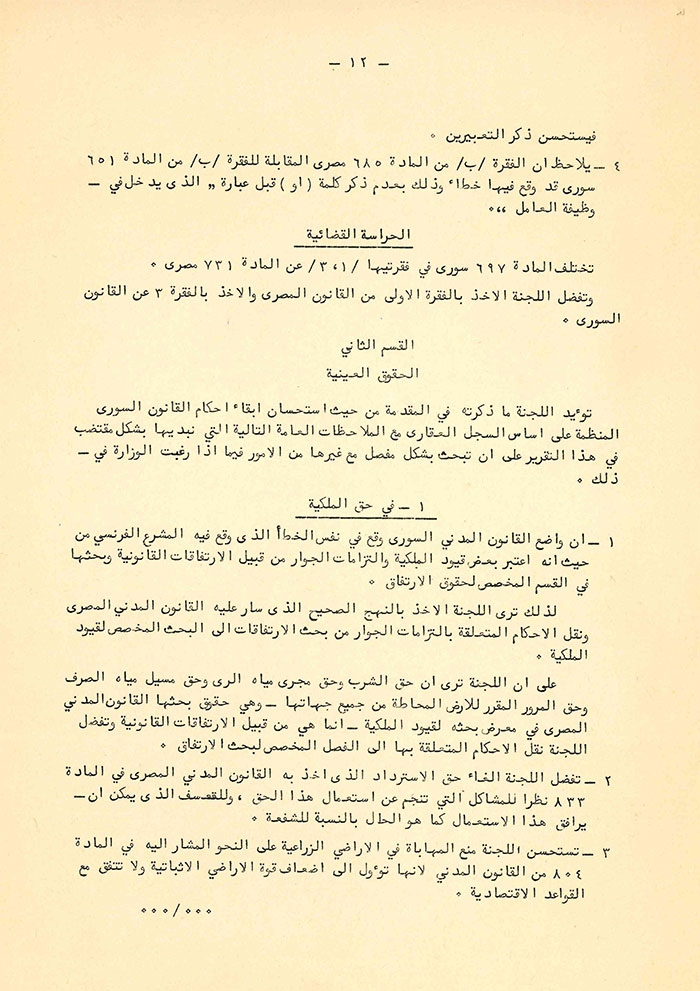 – ١٢ –
فيستحسن ذكر التعبيرين ٠
٤ – يلاحظ ان الفقرة /ب/ من المادة ٦٨٥ مصرى المقابلة للفقرة /ب/ من المادة ٦٥١
سورى قد وقع فيها خطاء وذلك بعدم ذكر كلمة (او) قبل عبارة ,, الذى يدخل في –
وظيفة العامل ,,٠
الحراسة القضائية
تختلف المادة ٦٩٧ سورى في فقرتيها /٣،١/ عن المادة ٧٣١ مصرى ٠
وتفضل اللجنة الاخذ بالفقرة الاولى من القانون المصرى والاخذ بالفقرة ٣ عن القانون
السورى ٠
القسم الثاني
الحقوق العينية
توئيد اللجنة ما ذكرته في المقدمة من حيث استحسان ابقاء احكام القانون السورى
المنظمة على اساس السجل العقارى مع الملاحظات العامة التالية التي نبديها بشكل مقتضب
في هذا التقرير على ان تبحث بشكل مفصل مع غيرها من الامور فيما اذا رغبت الوزارة في –
ذلك ٠
١ – في حق الملكية
١ – ان واضع القانون المدني السورى وقع في نفس الخطأ الذى وقع فيه المشرع الفرنسي من
حيث انه اعتبر بعض قيود الملكية والتزامات الجوار من قبيل الارتفاقات القانونية وبحثها
في القسم المخصص لحقوق الارتفاق ٠
لذلك ترى اللجنة الاخذ بالنهج الصحيح الذى سار عليه القانون المدني المصرى
ونقل الاحكام المتعلقة بالتزامات الجوار من بحث الارتفاقات الى البحث المخصص لقيود
الملكية ٠
على ان اللجنة ترى ان حق الشرب وحق مجرى مياه الرى وحق مسيل مياه الصرف
وحق المرور المقرر للارض المحاطة من جميع جهاتها – وهي حقوق بحثها القانون المدني
المصرى في معرض بحثه لقيود الملكية – انما هي من قبيل الارتفاقات القانونية وتفضل
اللجنة نقل الاحكام المتعلقة بها الى الفصل المخصص لبحث الارتفاق ٠
٢ – تفضل اللجنة الغاء حق الاسترداد الذى اخذ به القانون المدني المصرى في المادة
٨٣٣ نظرا للمشاكل التي تنجم عن استعمال هذا الحق ، وللقعسف الذى يمكن ان –
يرافق هذا الاستعمال كما هو الحال بالنسبة للشفعة ٠
٣ – تستحسن اللجنة منع المهاباة في الاراضي الزراعية على النحو المشار اليه في المادة
٨٠٤ من القانون المدني لانها توءول الى اضعاف قوة الاراضي الاثباتية ولا تتفق مع
القواعد الاقتصادية ٠
٠٠٠/٠٠٠